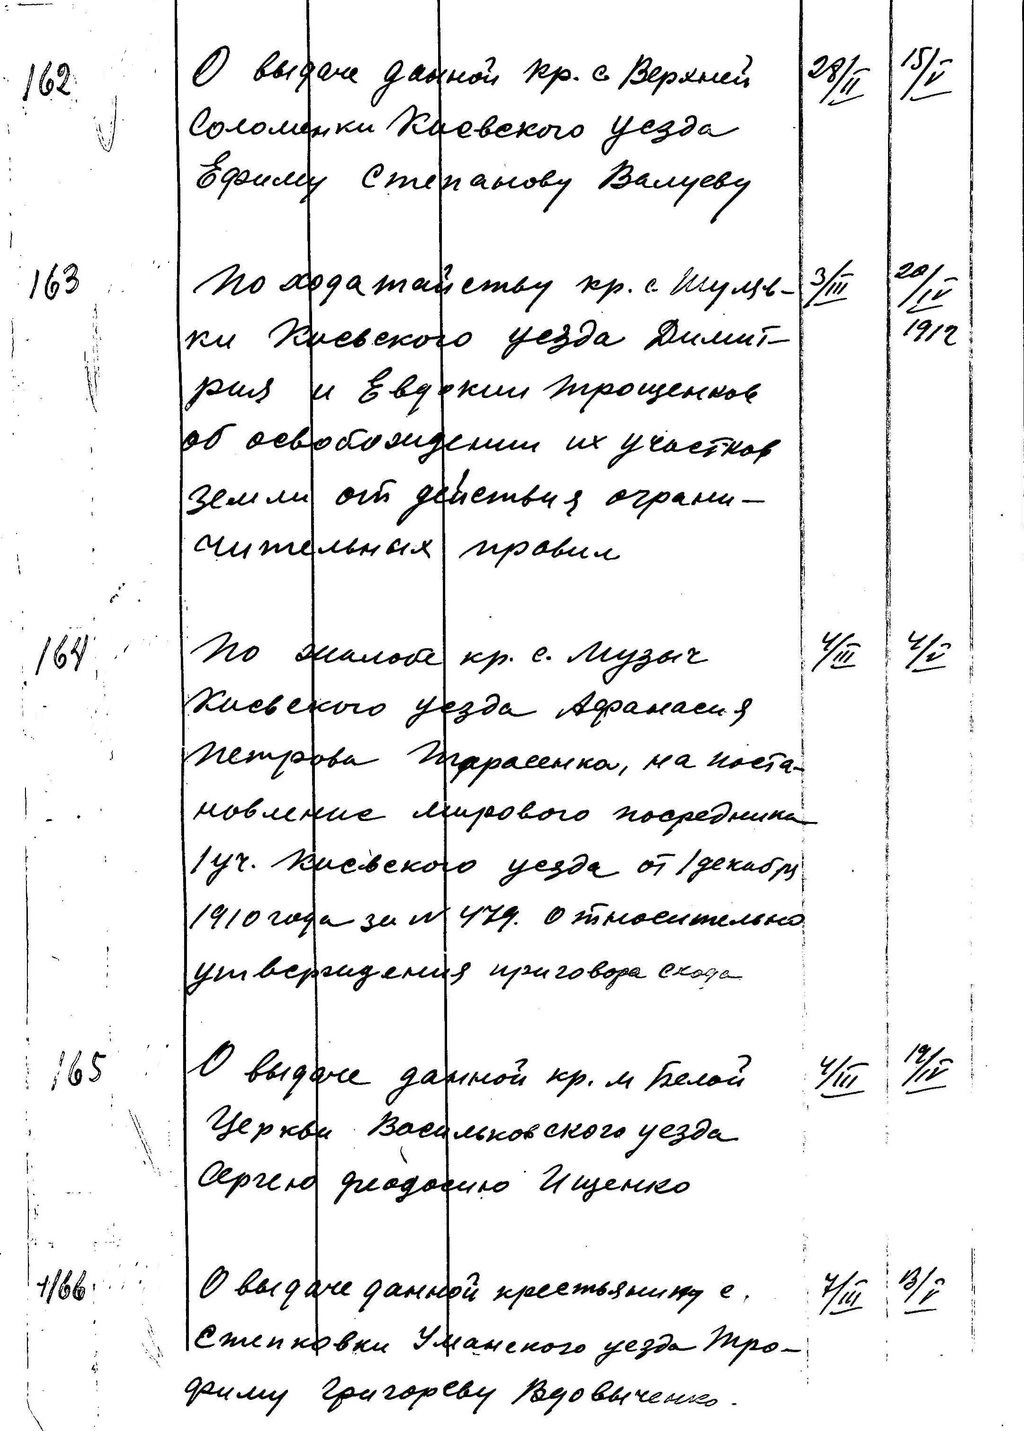 162 О выдаче данной кр. с Верхней 28/II 15/V
Соломенки Киевского уезда
Ефиму Степанову Валуеву
163 По ходатайству кр. с Шуляв- 3/III 20/IV
ки Киевского уезда Димит- 1912
рия и Евдокии Трощенков
об освобождении их участков
земли от действия ограни-
чительных правил
164 По жалобе кр. с. Музыч 4/III 4/V
Киевского уезда Афанасия
Петрова Тарасенка, на поста-
новление мирового посредника
1 уч. Киевского уезда от 1 декабря
1910 года за N 479. Относительно
утверждения приговора схода
165 О выдаче данной кр. м Белой 4/III 19/IV
Церкви Васильковского уезда
Сергею Феодосию Ищенко
166 О выдаче данной крестьянину с. 7/III 13/V
Степковки Уманского уезда Тро-
фиму Григореву Вдовыченко.